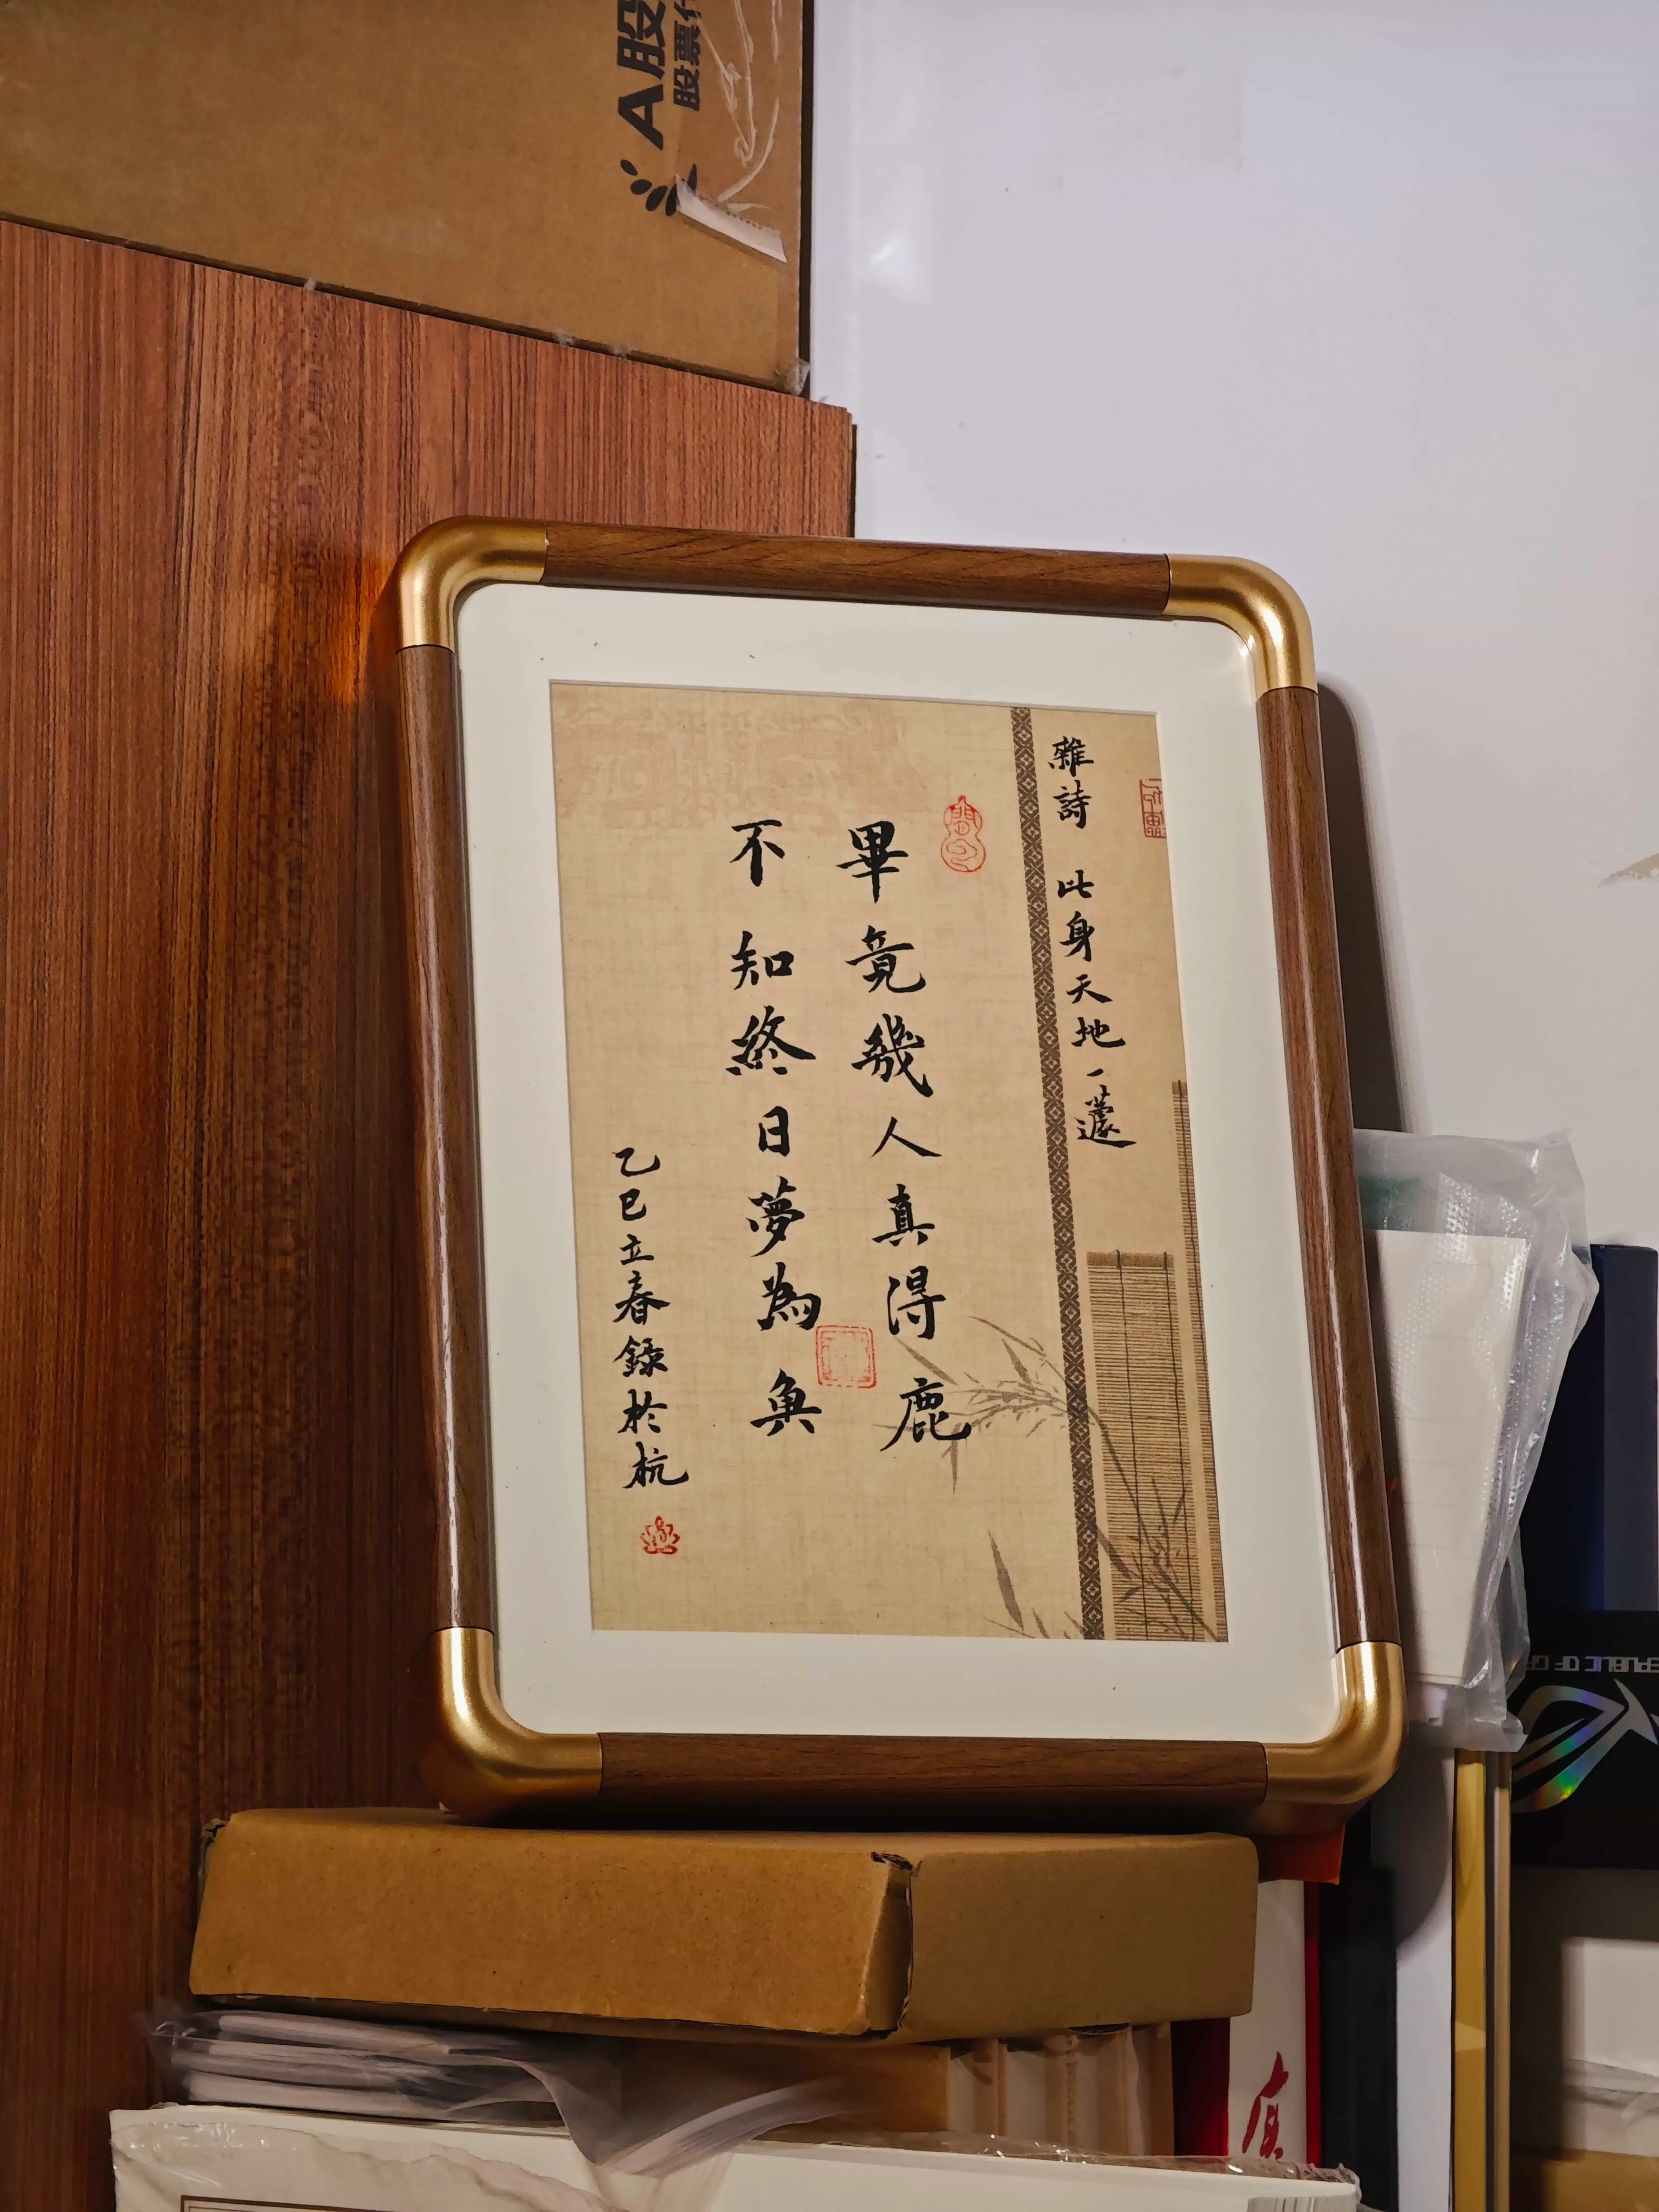 雜詩 此身天地一蘧
畢竟幾人真得鹿
不知終日夢為魚
乙巳立春錄於杭
A股
股票代